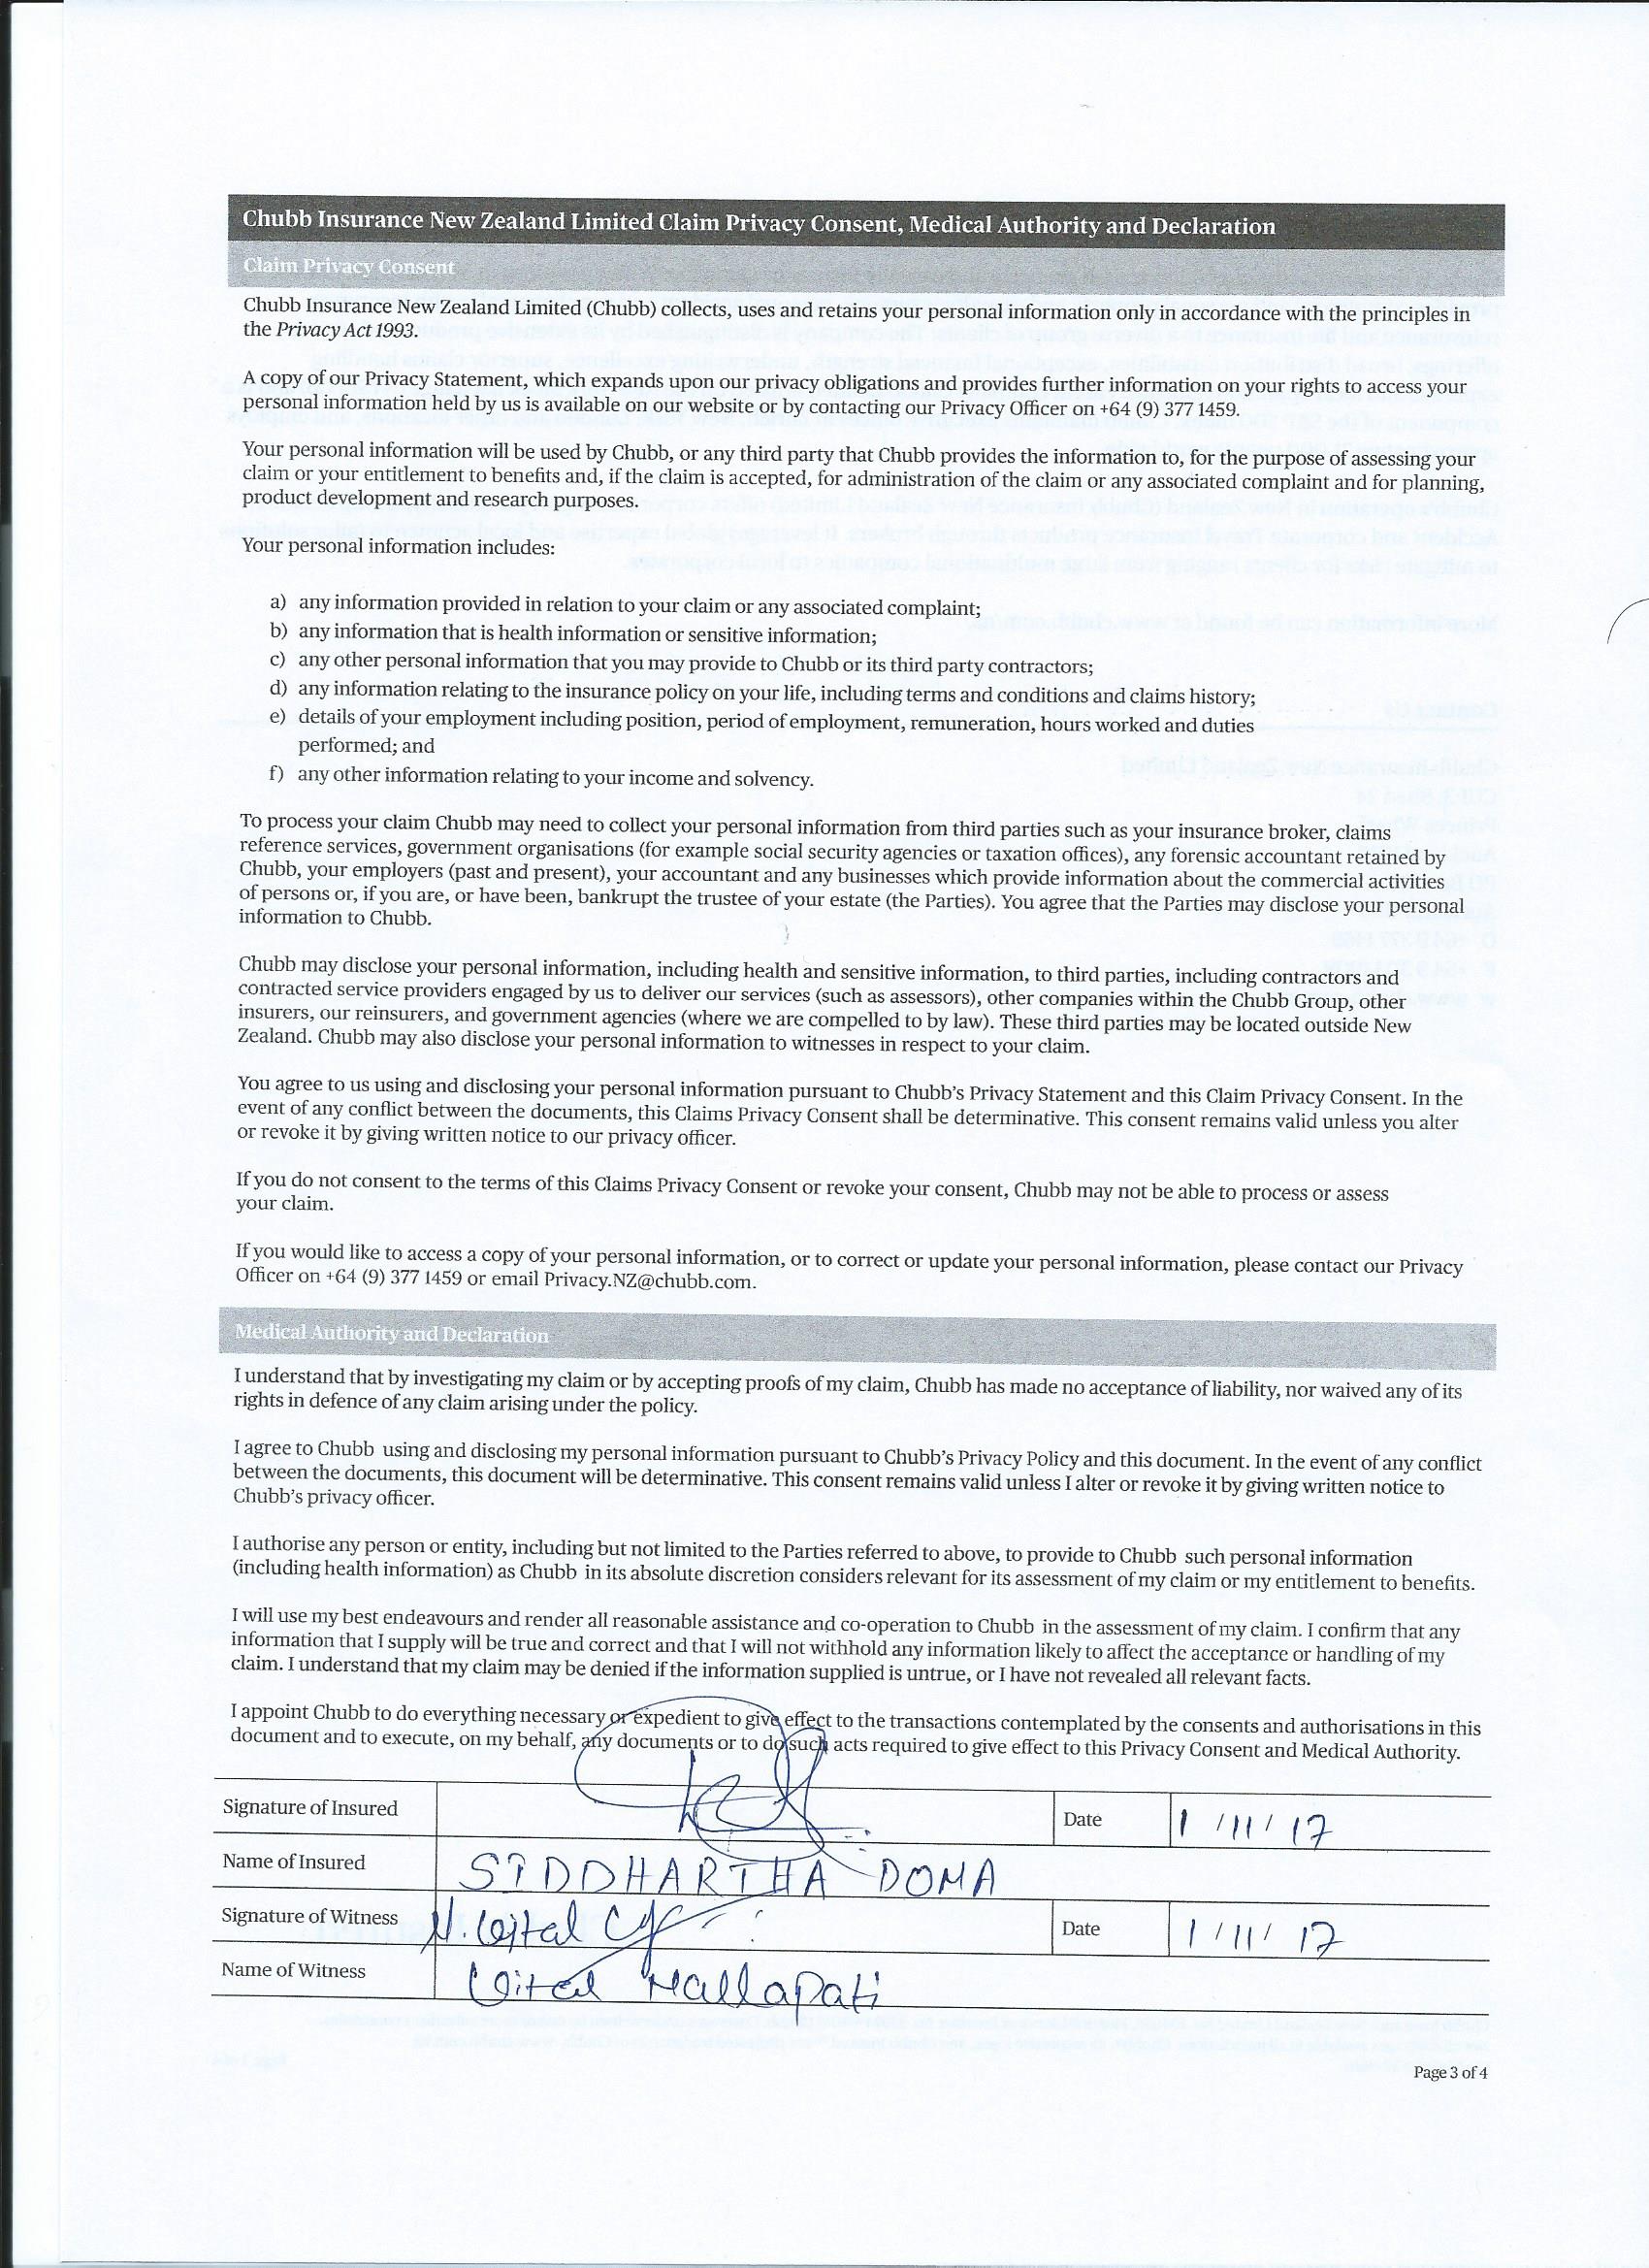 Chubb Insurance New Zealand Limited Claim Privacy Consent, Medical Authority and Declaration
Claim Privacy Consent
Chubb Insurance New Zealand Limited (Chubb) collects, uses and retains your personal information only in accordance with the principles in
the Privacy Act 1993.
A copy of our Privacy Statement, which expands upon our privacy obligations and provides further information on your rights to access your
personal information held by us is available on our website or by contacting our Privacy Officer on +64 (9) 377 1459.
Your personal information will be used by Chubb, or any third party that Chubb provides the information to, for the purpose of assessing your
claim or your entitlement to benefits and, if the claim is accepted, for administration of the claim or any associated complaint and for planning,
product development and research purposes.
Your personal information includes:
a) any information provided in relation to your claim or any associated complaint;
b) any information that is health information or sensitive information;
c) any other personal information that you may provide to Chubb or its third party contractors;
d) any information relating to the insurance policy on your life, including terms and conditions and claims history;
e) details of your employment including position, period of employment, remuneration, hours worked and duties
performed; and
f) any other information relating to your income and solvency.
To process your claim Chubb may need to collect your personal information from third parties such as your insurance broker, claims
reference services, government organisations (for example social security agencies or taxation offices), any forensic accountant retained by
Chubb, your employers (past and present), your accountant and any businesses which provide information about the commercial activities
of persons or, if you are, or have been, bankrupt the trustee of your estate (the Parties). You agree that the Parties may disclose your personal
information to Chubb.
Chubb may disclose your personal information, including health and sensitive information, to third parties, including contractors and
contracted service providers engaged by us to deliver our services (such as assessors), other companies within the Chubb Group, other
insurers, our reinsurers, and government agencies (where we are compelled to by law). These third parties may be located outside New
Zealand. Chubb may also disclose your personal information to witnesses in respect to your claim.
You agree to us using and disclosing your personal information pursuant to Chubb's Privacy Statement and this Claim Privacy Consent. In the
event of any conflict between the documents, this Claims Privacy Consent shall be determinative. This consent remains valid unless you alter
or revoke it by giving written notice to our privacy officer.
If you do not consent to the terms of this Claims Privacy Consent or revoke your consent, Chubb may not be able to process or assess
your claim.
If you would like to access a copy of your personal information, or to correct or update your personal information, please contact our Privacy
Officer on +64 (9) 377 1459 or email Privacy.NZ@chubb.com.
Medical Authority and Declaration
I understand that by investigating my claim or by accepting proofs of my claim, Chubb has made no acceptance of liability, nor waived any of its
rights in defence of any claim arising under the policy.
I agree to Chubb using and disclosing my personal information pursuant to Chubb's Privacy Policy and this document. In the event of any conflict
between the documents, this document will be determinative. This consent remains valid unless I alter or revoke it by giving written notice to
Chubb's privacy officer.
I authorise any person or entity, including but not limited to the Parties referred to above, to provide to Chubb such personal information
(including health information) as Chubb in its absolute discretion considers relevant for its assessment of my claim or my entitlement to benefits.
I will use my best endeavours and render all reasonable assistance and co-operation to Chubb in the assessment of my claim. I confirm that any
information that I supply will be true and correct and that I will not withhold any information likely to affect the acceptance or handling of my
claim. I understand that my claim may be denied if the information supplied is untrue, or I have not revealed all relevant facts.
I appoint Chubb to do everything necessary or expedient to give effect to the transactions contemplated by the consents and authorisations in this
document and to execute, on my behalf, any documents or to do such acts required to give effect to this Privacy Consent and Medical Authority.
Signature of Insured Date 1/11/17
Name of Insured SIDDHARTHA DOMA
Signature of Witness N. Vital Date 1/11/17
Name of Witness Vital Nallapati
Page 3 of 4